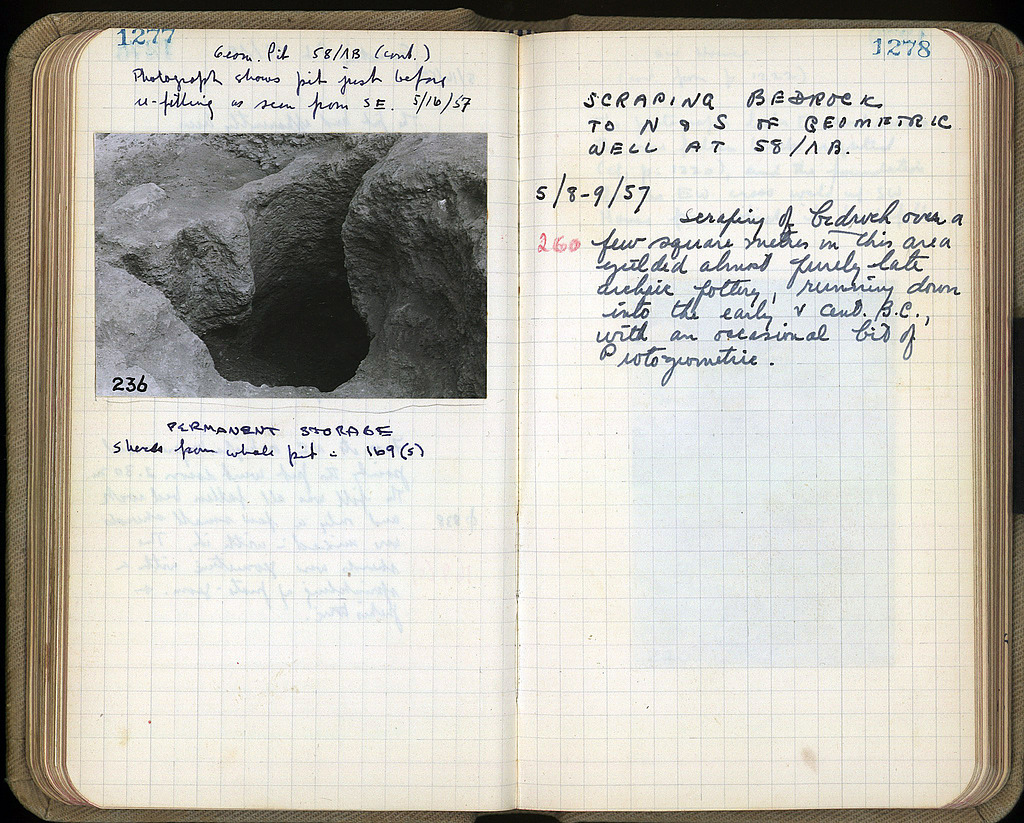 1277
Geom. Pit 58/ΛB (cont.)
Photograph shows pit just before
re-filling as seen from SE. 5/16/57
236
PERMANENT STORAGE
Sherds from whole pit = 169 (s)
1278
SCRAPING BEDROCK
TO N & S OF GEOMETRIC
WELL AT 58/ΛB.
5/8-9/57
Scraping of bedrock over a
260 few square metres in this area
yielded almost purely late
archaic pottery, running down
into the early V cent. B.C.,
with an occasional bit of
Protogeometric.